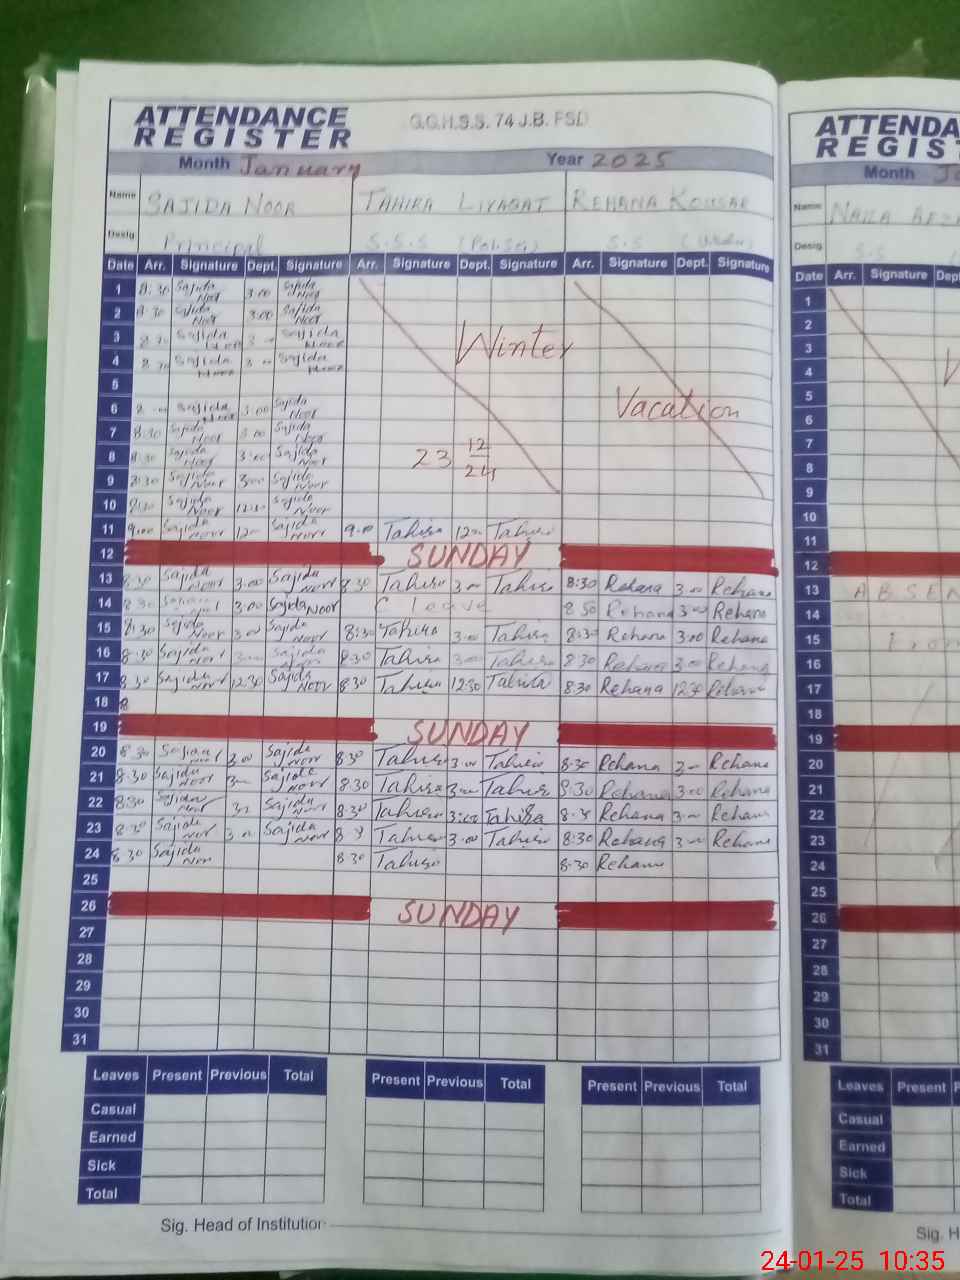 ATTENDANCE REGISTER G.G.H.S.S. 74 J.B. FSD
Month January Year 2025
Name SAJIDA NOOR TAHIRA LIYAQAT REHANA KOUSAR
Desig Principal S.S.S (Pol.Sci) S.S
Date Arr. Signature Dept. Signature Arr. Signature Dept. Signature Arr. Signature Dept. Signature
1 8:30 Sajida Noor 3:00 Sajida Noor
2 8:30 Sajida Noor 3:00 Sajida Noor
3 8:30 Sajida Noor Sajida Noor Winter
4 8:30 Sajida Noor Sajida Noor
5
6 Sajida Noor 3:00 Sajida Noor Vacation
7 8:30 Sajida Noor 3:00 Sajida Noor
8 8:30 Sajida Noor 3:00 Sajida Noor 23 12/24
9 8:30 Sajida Noor 3:00 Sajida Noor
10 8:30 Sajida Noor 12:30 Sajida Noor
11 9:00 Sajida Noor 12= Sajida Noor 9:00 Tahira 12= Tahira
12 SUNDAY
13 8:30 Sajida Noor 3:00 Sajida Noor 8:30 Tahira 3:00 Tahira 8:30 Rehana 3:00 Rehana
14 8:30 3:00 Sajida Noor C leave 8:30 Rehana 3:00 Rehana
15 8:30 Sajida Noor 3:00 Sajida Noor 8:30 Tahira 3:00 Tahira 8:30 Rehana 3:00 Rehana
16 8:30 Sajida Noor 3:00 Sajida Noor 8:30 Tahira 3:00 Tahira 8:30 Rehana 3:00 Rehana
17 8:30 Sajida Noor 12:30 Sajida Noor 8:30 Tahira 12:30 Tahira 8:30 Rehana 12:30 Rehana
18 8
19 SUNDAY
20 8:30 Sajida Noor 3:00 Sajida Noor 8:30 Tahira 3:00 Tahira 8:30 Rehana 3:00 Rehana
21 8:30 Sajida Noor 3:00 Sajida Noor 8:30 Tahira 3:00 Tahira 8:30 Rehana 3:00 Rehana
22 8:30 Sajida Noor 3= Sajida Noor 8:30 Tahira 3:00 Tahira 8:30 Rehana 3:00 Rehana
23 8:30 Sajida Noor 3:00 Sajida Noor Tahira 3:00 Tahira 8:30 Rehana 3:00 Rehana
24 8:30 Sajida Noor 8:30 Tahira 8:30 Rehana
25
26 SUNDAY
27
28
29
30
31
Leaves Present Previous Total Present Previous Total Present Previous Total
Casual
Earned
Sick
Total
Sig. Head of Institution
ATTENDA
REGIST
Month
Name NAILA
Desig S.S
Date Arr. Signature Dept
1
2
3
4
5
6
7
8
9
10
11
12
13 ABSEN
14
15 From
16
17
18
19
20
21
22
23
24
25
26
27
28
29
30
31
Leaves Present P
Casual
Earned
Sick
Total
Sig. H
24-01-25 10:35